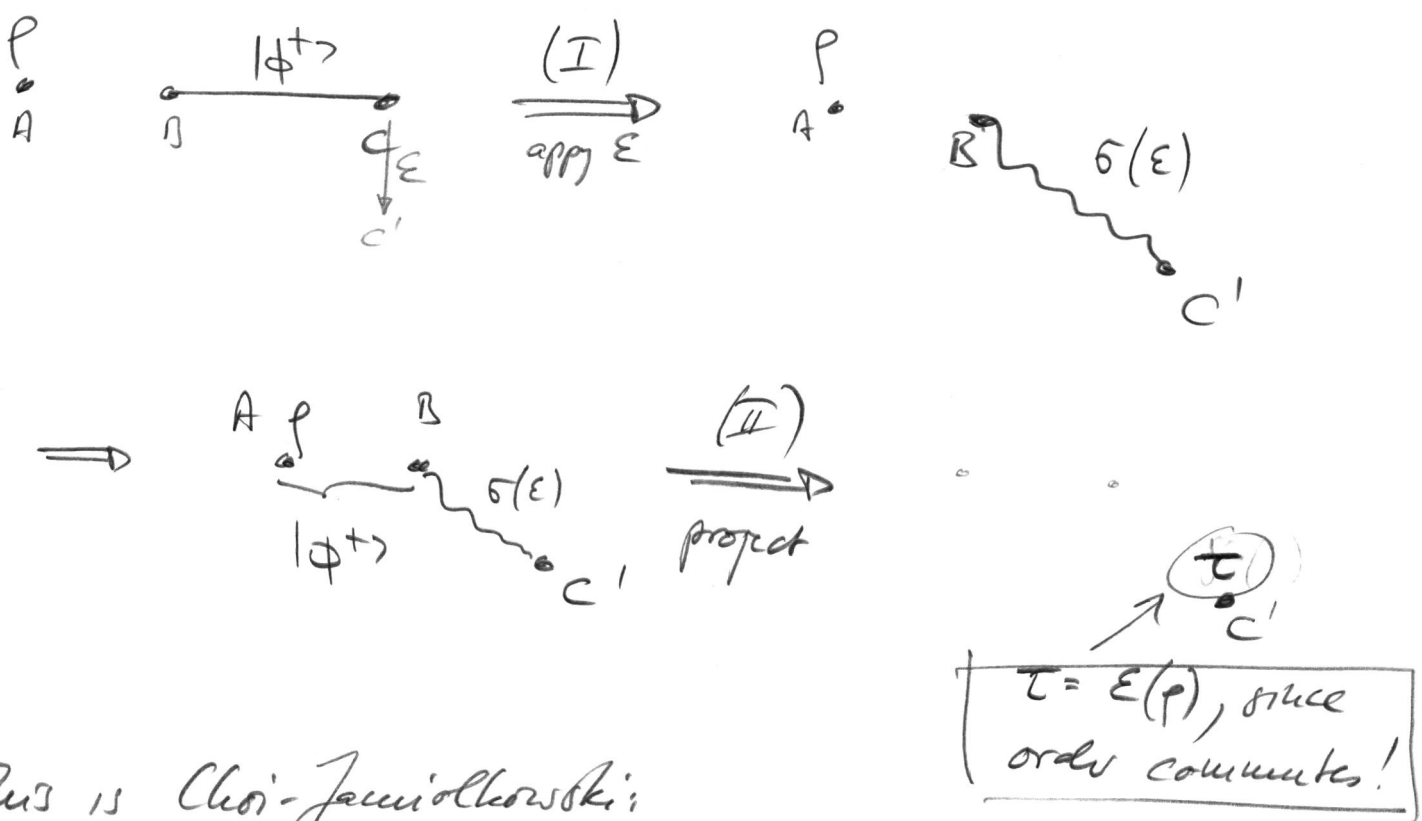 ρ |ϕ⁺> (I) ρ
A B C apply ε A B σ(ε)
ε
C'
C'
A ρ B (II)
|ϕ⁺> σ(ε) project
C' τ
C'
τ = ε(ρ), since
order commutes!
This is Choi-Jamiolkowski: